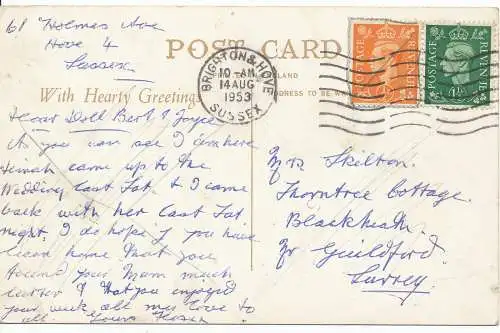 61 Holmes Ave
Hove 4
Sussex
POST CARD
BRIGHTON & HOVE
10-AM
14 AUG
1953
SUSSEX
POSTAGE REVENUE
POSTAGE REVENUE
With Hearty Greetings
ADDRESS TO BE
Dear Doll Bert & Joyce
As you can see I am here
came up to the
Wedding last Sat. & I came
back with her last Sat
night, I do hope if you have
been home that you
found your Mam much
better & that you enjoyed
your week all my love to
all. Yours
Mrs Skilton.
Thorntree Cottage.
Blackheath.
Nr Guildford
Surrey.